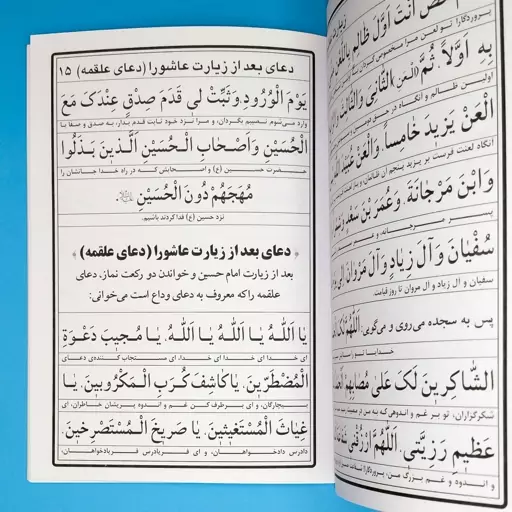 پروردگارا تو لعن مرا مخصوص گردان
بِهِ اَوَّلاً، ثُمَّ (الْعَنِ) الثَّانِیَ وَالثَّالِثَ
اولین ظالم و آنگاه در حق دومین
اَلْعَنْ یَزیدَ خامِساً، وَالْعَنْ عُبَیْدَ اللهِ
آنگاه لعنت فرست بر یزید پنجم آن ظالمان و باز
وَابْنَ مَرْجانَةَ، وَعُمَرَ بْنَ سَعْدٍ
پسر مرجانه، و عمر
سُفْیانَ وَآلَ زِیادٍ وَآلَ مَرْوانَ
سفیان و آل زیاد و آل مروان تا روز قیامت.
پس به سجده می‌روی و می‌گویی: اَللّهُمَّ لَکَ
خدایا تو را
الشَّاکِرینَ لَکَ عَلی مُصابِهِمْ
شکرگزاران، تو بر غم و اندوهی که به من در مصیبت
عَظیمِ رَزِیَّتی، اَللّهُمَّ ارْزُقْنی
و اندوه و غم بزرگ من، پروردگارا
دعای بعد از زیارت عاشورا (دعای علقمه) ۱۵
یَوْمَ الْوُرُودِ، وَثَبِّتْ لی قَدَمَ صِدْقٍ عِنْدَکَ مَعَ
وارد می‌شوم نصیبم بگردان، و مرا نزد خود ثابت قدم بدار، به صدق و صفا با
الْحُسَیْنِ وَاَصْحابِ الْحُسَیْنِ الَّذینَ بَذَلُوا
حضرت حسین (ع) و اصحابش که در راه خدا جانشان را
مُهَجَهُمْ دُونَ الْحُسَیْنِ
نزد حسین (ع) فدا کردند باشیم.
دعای بعد از زیارت عاشورا (دعای علقمه)
بعد از زیارت امام حسین و خواندن دو رکعت نماز، دعای
علقمه را که معروف به دعای وداع است می‌خوانی:
یا اَللهُ یا اَللهُ یا اَللهُ، یا مُجیبَ دَعْوَةِ
ای خدا ای خدا ای خدا، ای مستجاب کننده‌ی دعای
الْمُضْطَرّینَ، یا کاشِفَ کُرَبِ الْمَکْرُوبینَ، یا
بیچارگان، و ای برطرف کن غم و اندوه پریشان خاطران، ای
غِیاثَ الْمُسْتَغیثینَ، یا صَریخَ الْمُسْتَصْرِخینَ،
دادرس دادخواهان، و ای فریادرس فریادخواهان،